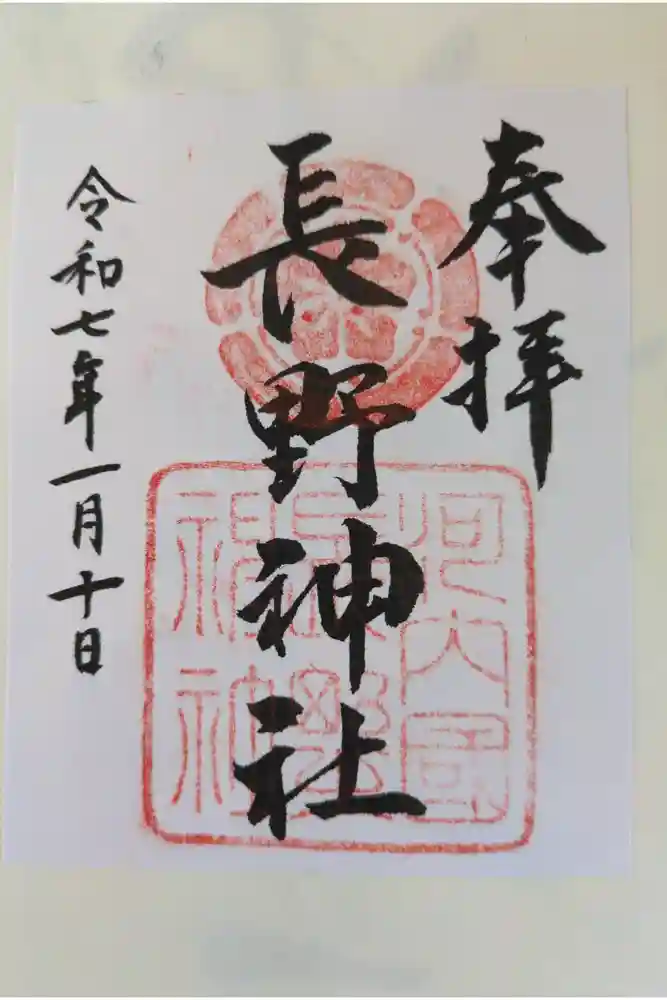 奉拝
長野神社
令和七年一月十日